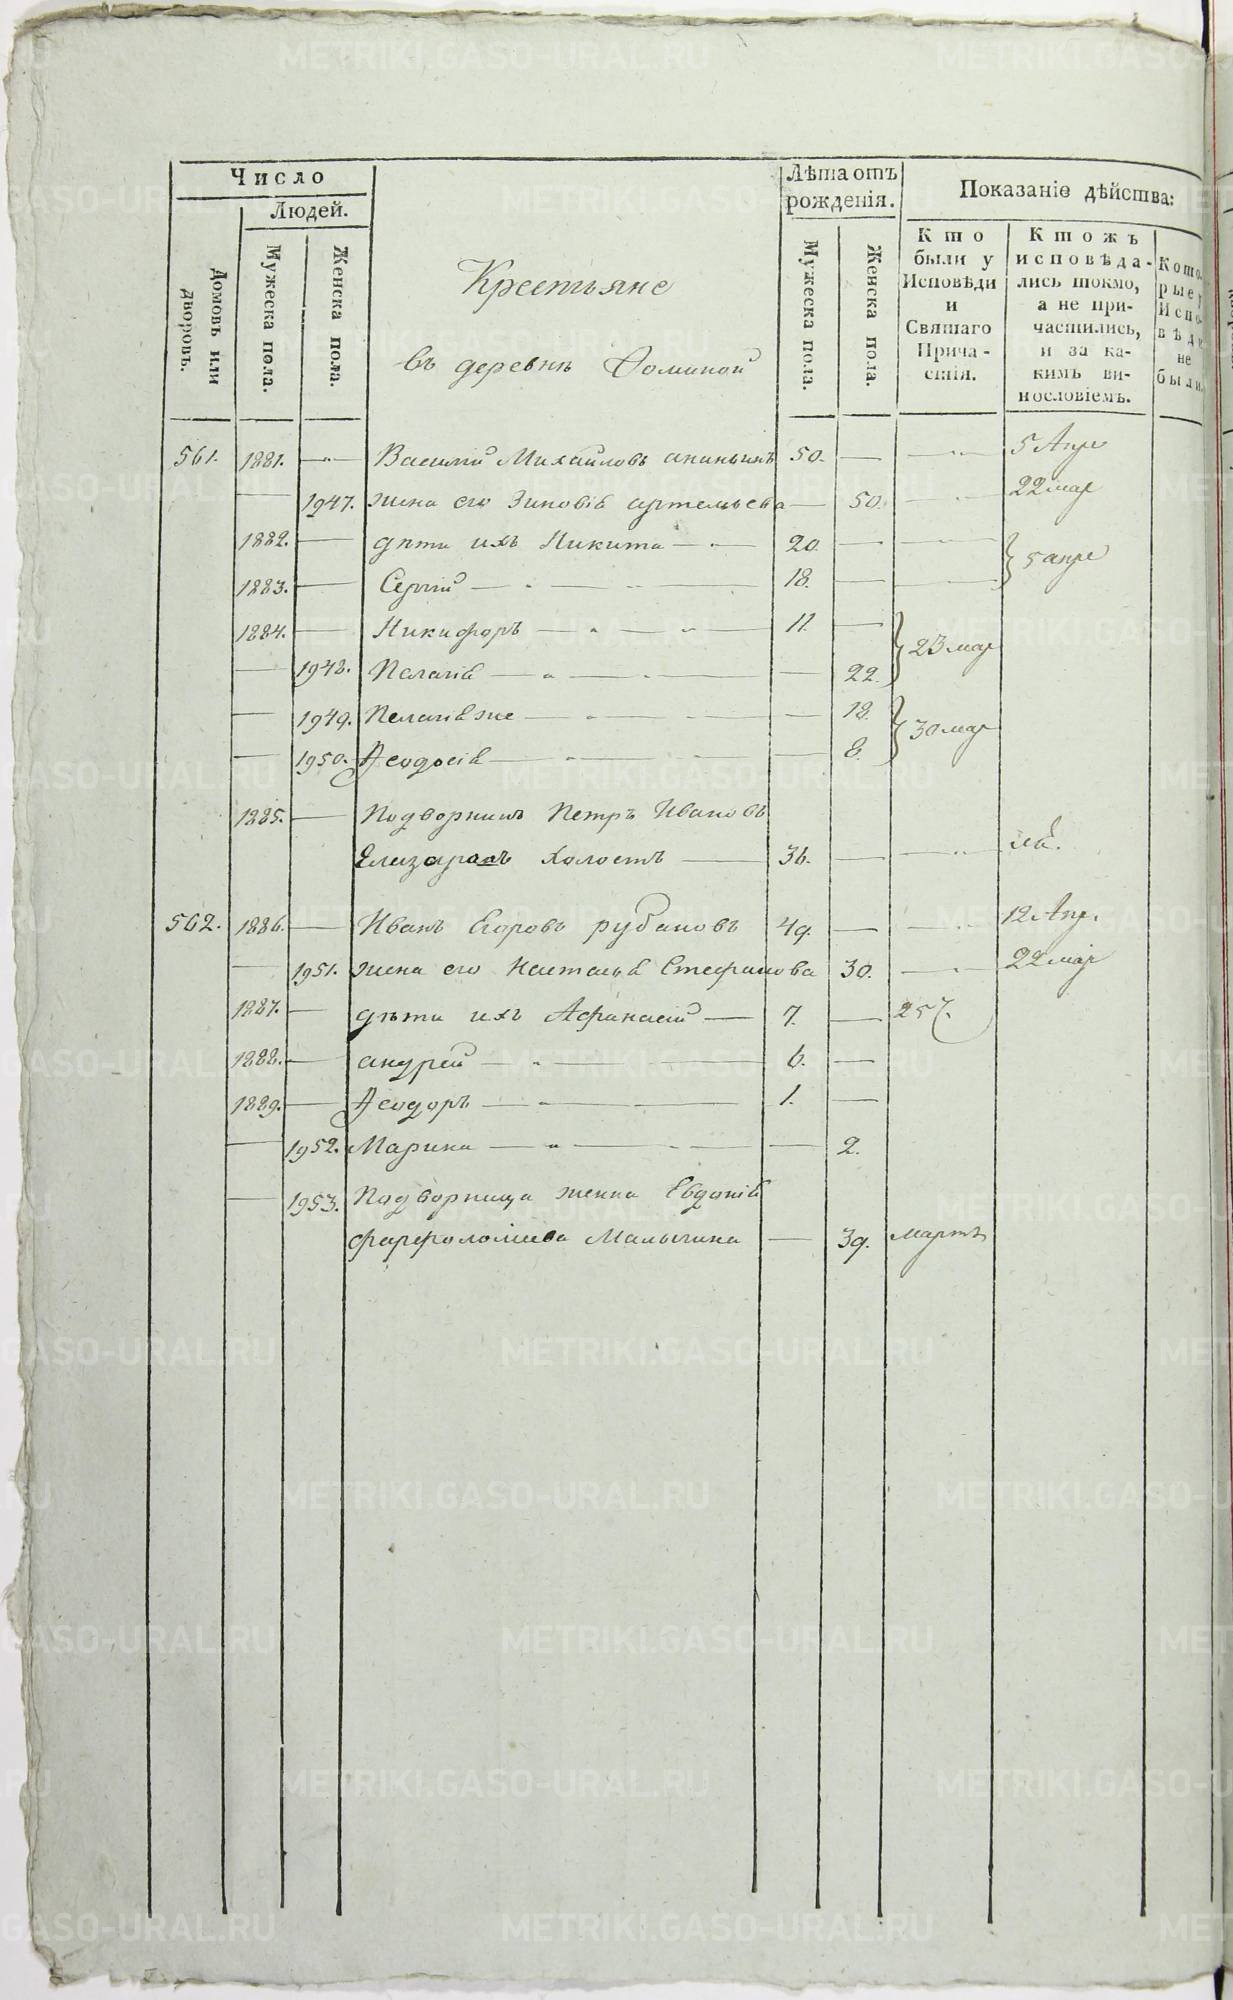 Число
Людей.
Домовъ или дворовъ.
Мужеска пола.
Женска пола.
Лѣта отъ рожденія.
Мужеска пола.
Женска пола.
Показаніе дѣйства:
Кто были у Исповѣди и Святаго Причастія.
Ктожъ исповѣдались токмо, а не причастились, и за какимъ винословіемъ.
Которые у Исповѣди не были.
Крестьяне
въ деревнѣ Ѳоминой
561. 1881. — Василій Михайловъ ананьинъ 50. — — 5 Апре
— 1947. жена его Зиновія — 50. — 22 мар
1882. — дѣти ихъ Никита — 20. — —
1883. — Сергій — 18. — — } 5 апре
1884. — Никифоръ — 11. —
— 1948. Пелагія — — 22. } 23 мар
— 1949. Пелагія же — — 18.
— 1950. Ѳеодосія — — 8. } 30 мар
1885. — Подворникъ Петръ Ивановъ
Елизаровъ холостъ — 36. — —
562. 1886. — Иванъ Егоровъ рубановъ 49. — — 12 Апр.
— 1951. жена его Наталья Стефанова 30. — 22 мар
1887. — дѣти ихъ Афанасій — 7. — 25
1888. — андрей — 6. —
1889. — Ѳеодоръ — 1. —
— 1952. Марина — — 2.
— 1953. Подворница женка Евдокія
фарфоломиева Малыгина — 39. мартъ
METRIKI.GASO-URAL.RU